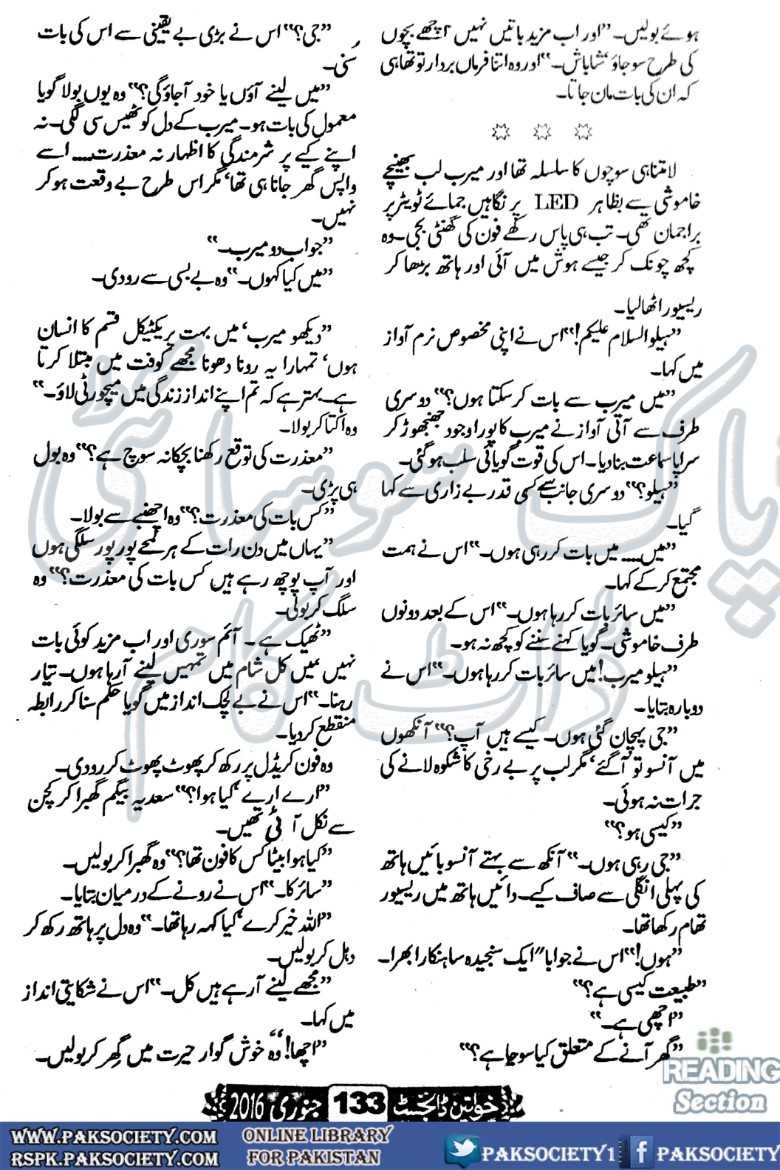 ہوئے بولیں۔ ’’اور اب مزید باتیں نہیں اچھے بچوں
کی طرح سو جاؤ‘ شاباش۔‘‘ اور وہ اتنا فرماں بردار تو تھا ہی
کہ ان کی بات مان جاتا۔
لامتناہی سوچوں کا سلسلہ تھا اور میرب لب بھینچے
خاموشی سے بظاہر LED پر نگاہیں جمائے ٹو سیٹر پر
براجمان تھی۔ تب ہی پاس رکھے فون کی گھنٹی بجی۔ وہ
کچھ چونک کر جیسے ہوش میں آئی اور ہاتھ بڑھا کر
ریسیور اٹھالیا۔
’’ہیلو السلام علیکم!‘‘ اس نے اپنی مخصوص نرم آواز
میں کہا۔
’’میں میرب سے بات کرسکتا ہوں؟‘‘ دوسری
طرف سے آتی آواز نے میرب کا پورا وجود جھنجھوڑ کر
سراپا سماعت بنادیا۔ اس کی قوت گویائی سلب ہوگئی۔
’’ہیلو؟‘‘ دوسری جانب سے کسی قدر بے زاری سے کہا
گیا۔
’’میں.... میں بات کررہی ہوں۔‘‘ اس نے ہمت
مجتمع کرکے کہا۔
’’میں سائر بات کررہا ہوں۔‘‘ اس کے بعد دونوں
طرف خاموشی۔ گویا کہنے سننے کو کچھ نہ ہو۔
’’ہیلو میرب! میں سائر بات کررہا ہوں۔‘‘ اس نے
دوبارہ بتایا۔
’’جی پہچان گئی ہوں۔ کیسے ہیں آپ؟‘‘ آنکھوں
میں آنسو تو آگئے‘ مگر لب پر بے رخی کا شکوہ لانے کی
جرات نہ ہوئی۔
’’کیسی ہو؟‘‘
’’جی رہی ہوں۔‘‘ آنکھ سے بہتے آنسو بائیں ہاتھ
کی پہلی انگلی سے صاف کیے۔ دائیں ہاتھ میں ریسیور
تھام رکھا تھا۔
’’ہوں!‘‘ اس نے جوابا’’ ایک سنجیدہ سا ہنکارا بھرا۔
’’طبیعت کیسی ہے؟‘‘
’’اچھی ہے۔‘‘
’’گھر آنے کے متعلق کیا سوچا ہے؟‘‘
’’جی؟‘‘ اس نے بڑی بے یقینی سے اس کی بات
سنی۔
’’میں لینے آؤں یا خود آجاؤگی؟‘‘ وہ یوں بولا گویا
معمول کی بات ہو۔ میرب کے دل کو ٹھیس سی لگی۔ نہ
اپنے کیے پر شرمندگی کا اظہار نہ معذرت.... اسے
واپس گھر جانا ہی تھا‘ مگر اس طرح بے وقعت ہوکر
نہیں۔
’’جواب دو میرب۔‘‘
’’میں کیا کہوں۔‘‘ وہ بے بسی سے رودی۔
’’دیکھو میرب‘ میں بہت پریکٹیکل قسم کا انسان
ہوں‘ تمہارا یہ رونا دھونا مجھے کوفت میں مبتلا کرتا
ہے۔ بہتر ہے کہ تم اپنے انداز زندگی میں میچورٹی لاؤ۔‘‘
وہ اکتا کر بولا۔
’’معذرت کی توقع رکھنا بچکانہ سوچ ہے؟‘‘ وہ بول
ہی پڑی۔
’’کس بات کی معذرت؟‘‘ وہ اچنبھے سے بولا۔
’’یہاں میں دن رات کے ہر لمحے پور پور سلگی ہوں
اور آپ پوچھ رہے ہیں کس بات کی معذرت؟‘‘ وہ
سلگ کر بولی۔
’’ٹھیک ہے۔ آئم سوری اور اب مزید کوئی بات
نہیں‘ میں کل شام میں تمہیں لینے آرہا ہوں۔ تیار
رہنا۔‘‘ اس نے بے لچک انداز میں گویا حکم سنا کر رابطہ
منقطع کردیا۔
وہ فون کریڈل پر رکھ کر پھوٹ پھوٹ کر رودی۔
’’ارے ارے‘ کیا ہوا؟‘‘ سعدیہ بیگم گھبرا کر کچن
سے نکل آئی تھیں۔
’’کیا ہوا بیٹا کس کا فون تھا؟‘‘ وہ گھبرا کر بولیں۔
’’سائر کا۔‘‘ اس نے رونے کے درمیان بتایا۔
’’اللہ خیر کرے‘ کیا کہہ رہا تھا۔‘‘ وہ دل پر ہاتھ رکھ کر
دہل کر بولیں۔
’’مجھے لینے آرہے ہیں کل۔‘‘ اس نے شکایتی انداز
میں کہا۔
’’اچھا!‘‘ وہ خوش گوار حیرت میں گھر کر بولیں۔
خواتین ڈائجسٹ 133 جنوری 2016
READING
Section
پاک سوسائٹی
ڈاٹ کام
WWW.PAKSOCIETY.COM
RSPK.PAKSOCIETY.COM
ONLINE LIBRARY
FOR PAKISTAN
PAKSOCIETY1
PAKSOCIETY